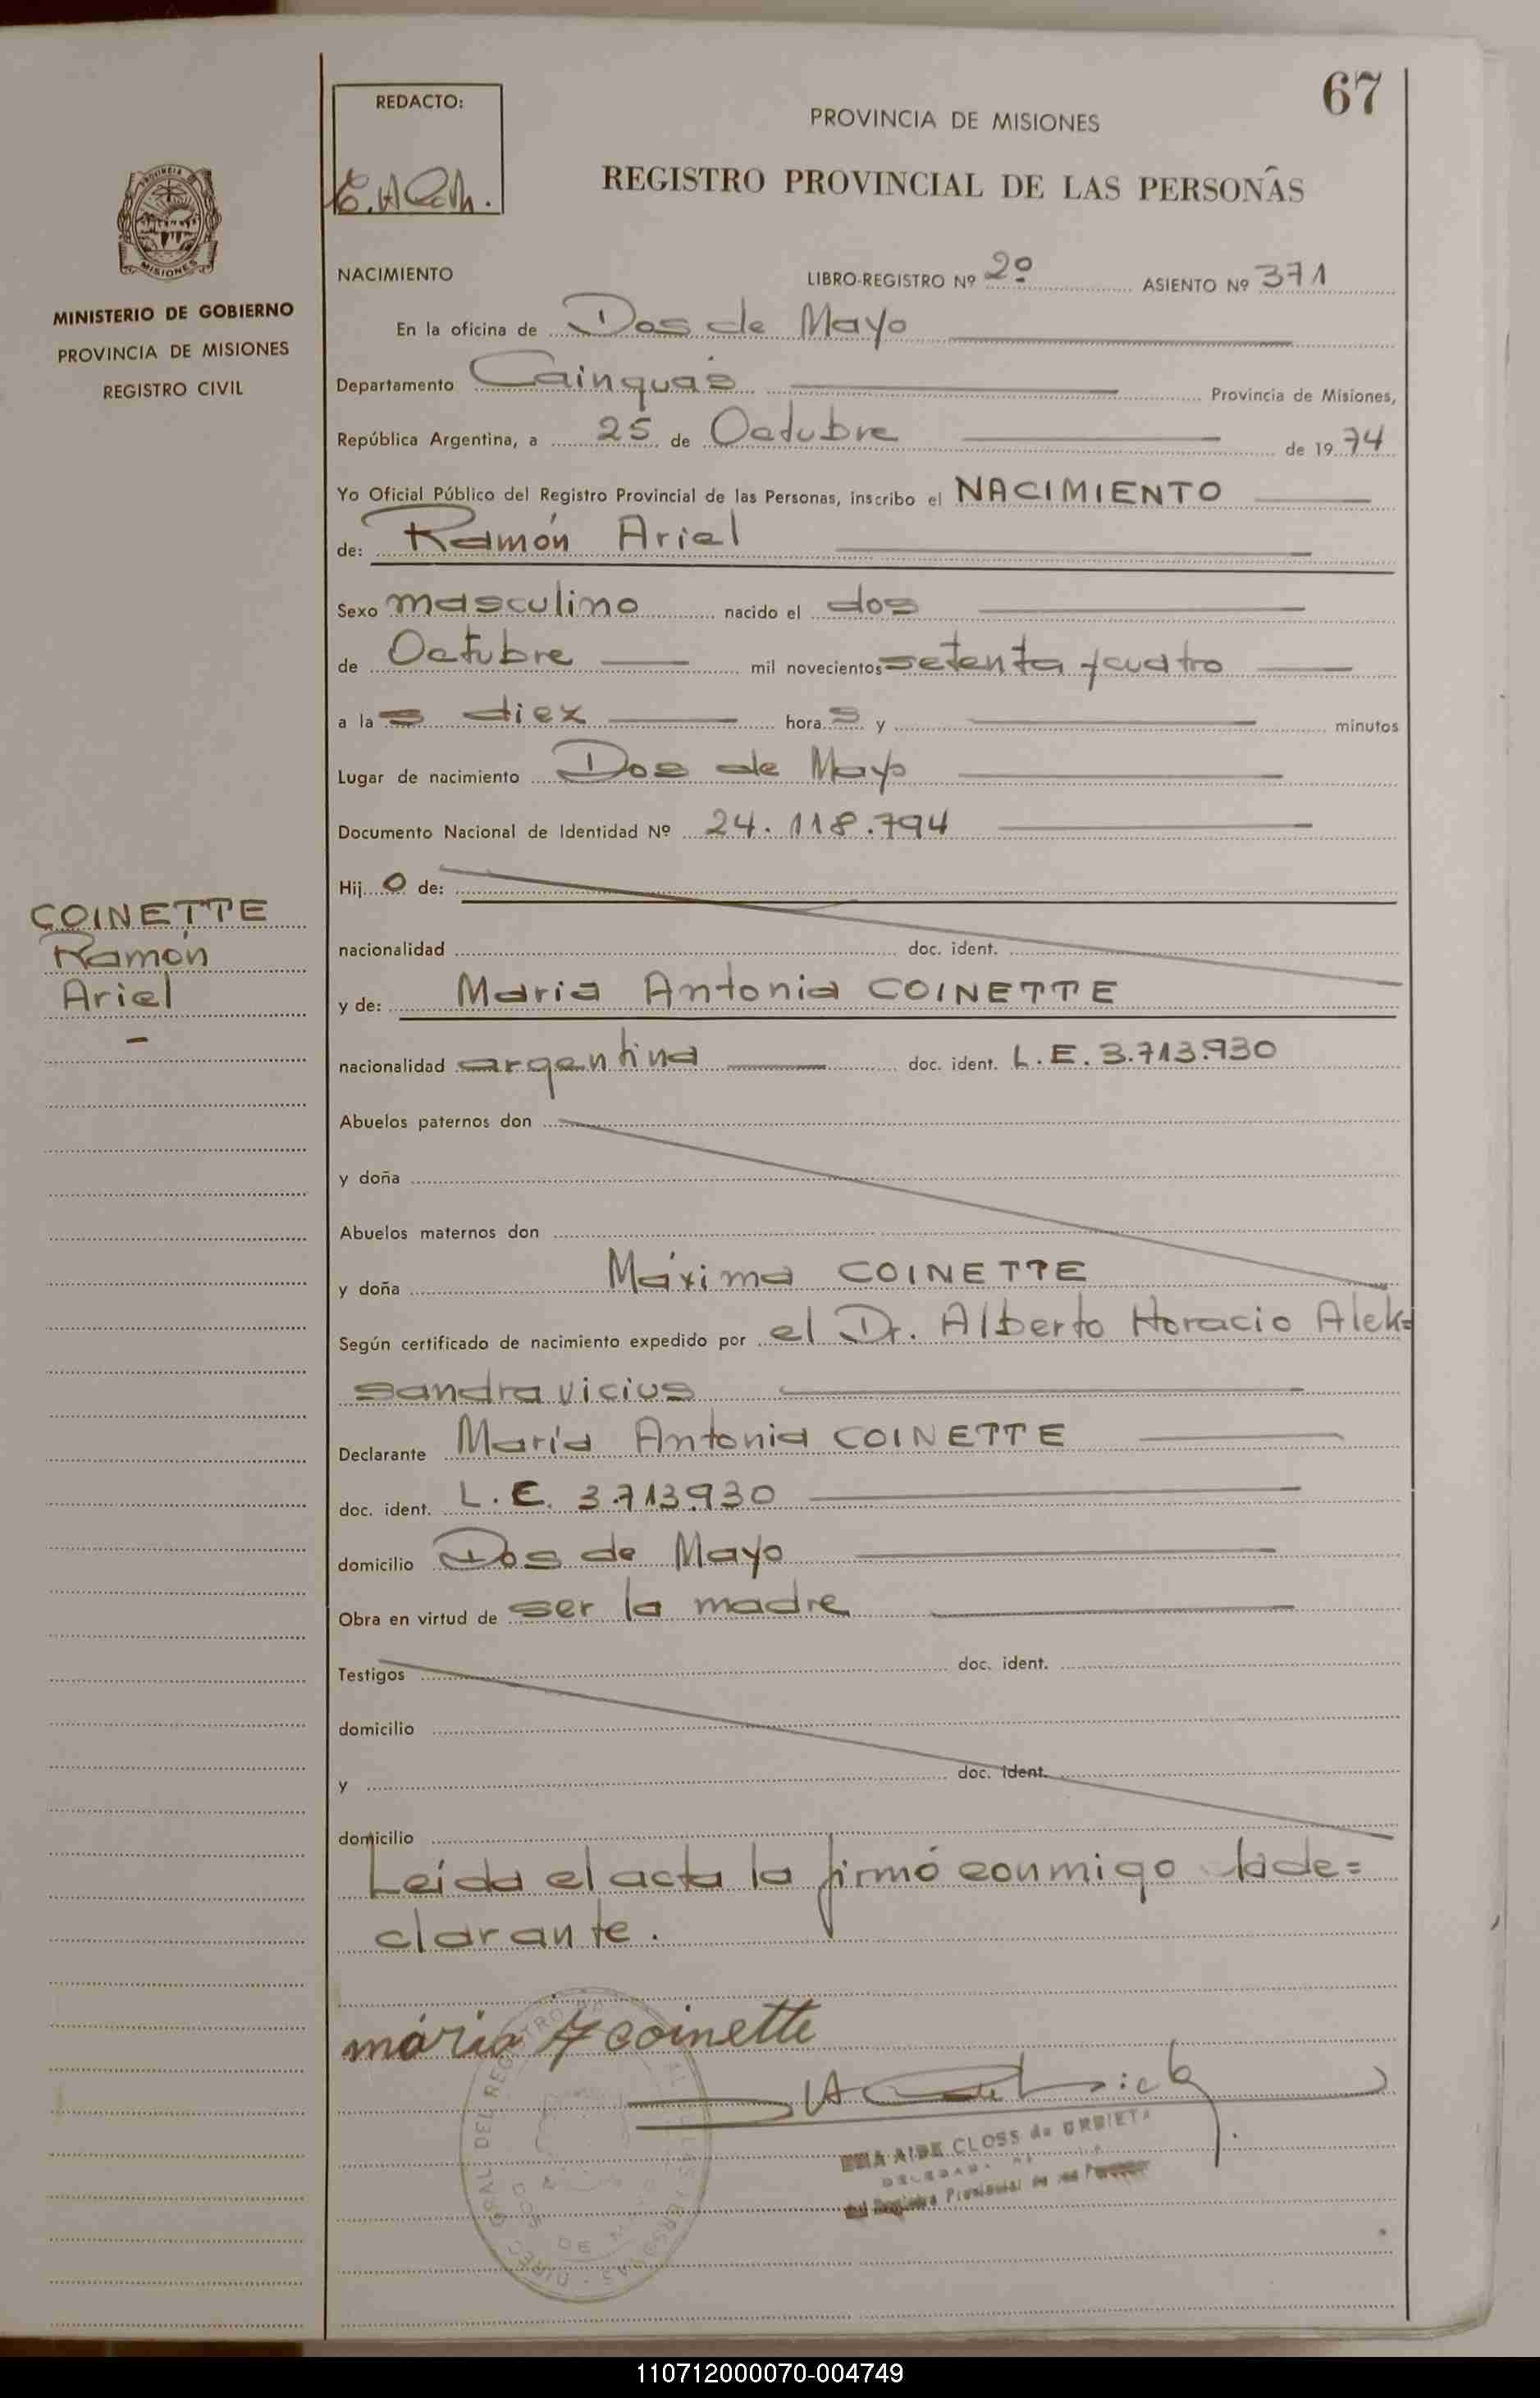 67
REDACTO:
PROVINCIA DE MISIONES
REGISTRO PROVINCIAL DE LAS PERSONAS
PROVINCIA DE
MISIONES
MINISTERIO DE GOBIERNO
PROVINCIA DE MISIONES
REGISTRO CIVIL
NACIMIENTO LIBRO-REGISTRO Nº 2º ASIENTO Nº 371
En la oficina de Dos de Mayo
Departamento Cainguás Provincia de Misiones,
República Argentina, a 25 de Octubre de 1974
Yo Oficial Público del Registro Provincial de las Personas, inscribo el NACIMIENTO
de: Ramón Ariel
Sexo masculino nacido el dos
de Octubre mil novecientos setenta y cuatro
a las diez horas y minutos
Lugar de nacimiento Dos de Mayo
Documento Nacional de Identidad Nº 24.118.794
Hijo de:
COINETTE
Ramón
Ariel
nacionalidad doc. ident.
y de: María Antonia COINETTE
nacionalidad argentina doc. ident. L.E. 3.713.930
Abuelos paternos don
y doña
Abuelos maternos don
y doña Máxima COINETTE
Según certificado de nacimiento expedido por el Dr. Alberto Horacio Alek=
sandravicius
Declarante María Antonia COINETTE
doc. ident. L.E. 3.713.930
domicilio Dos de Mayo
Obra en virtud de ser la madre
Testigos doc. ident.
domicilio
y doc. ident.
domicilio
Leída el acta la firmó conmigo la de=
clarante.
maria A coinette
AIDE CLOSS de URBIETA
DELEGADA
del Registro Provincial de las Personas
110712000070-004749